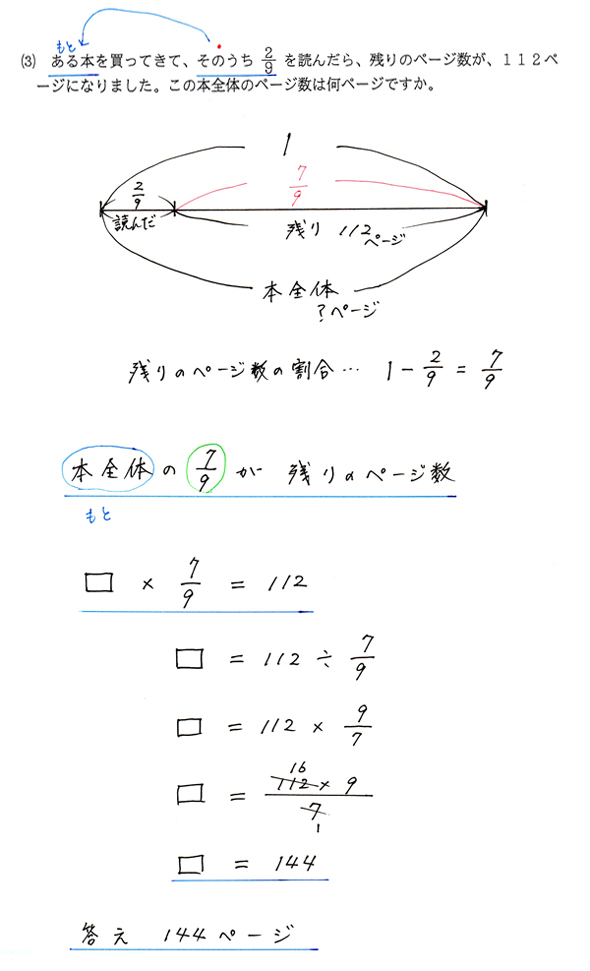 もと
(3) ある本を買ってきて、そのうち 2/9 を読んだら、残りのページ数が、112ペ
ージになりました。この本全体のページ数は何ページですか。
1
2/9 7/9
読んだ 残り 112ページ
本全体
?ページ
残りのページ数の割合… 1 - 2/9 = 7/9
本全体 の 7/9 が 残りのページ数
もと
□ × 7/9 = 112
□ = 112 ÷ 7/9
□ = 112 × 9/7
16
□ = 112 × 9 / 7
1
□ = 144
答え 144ページ